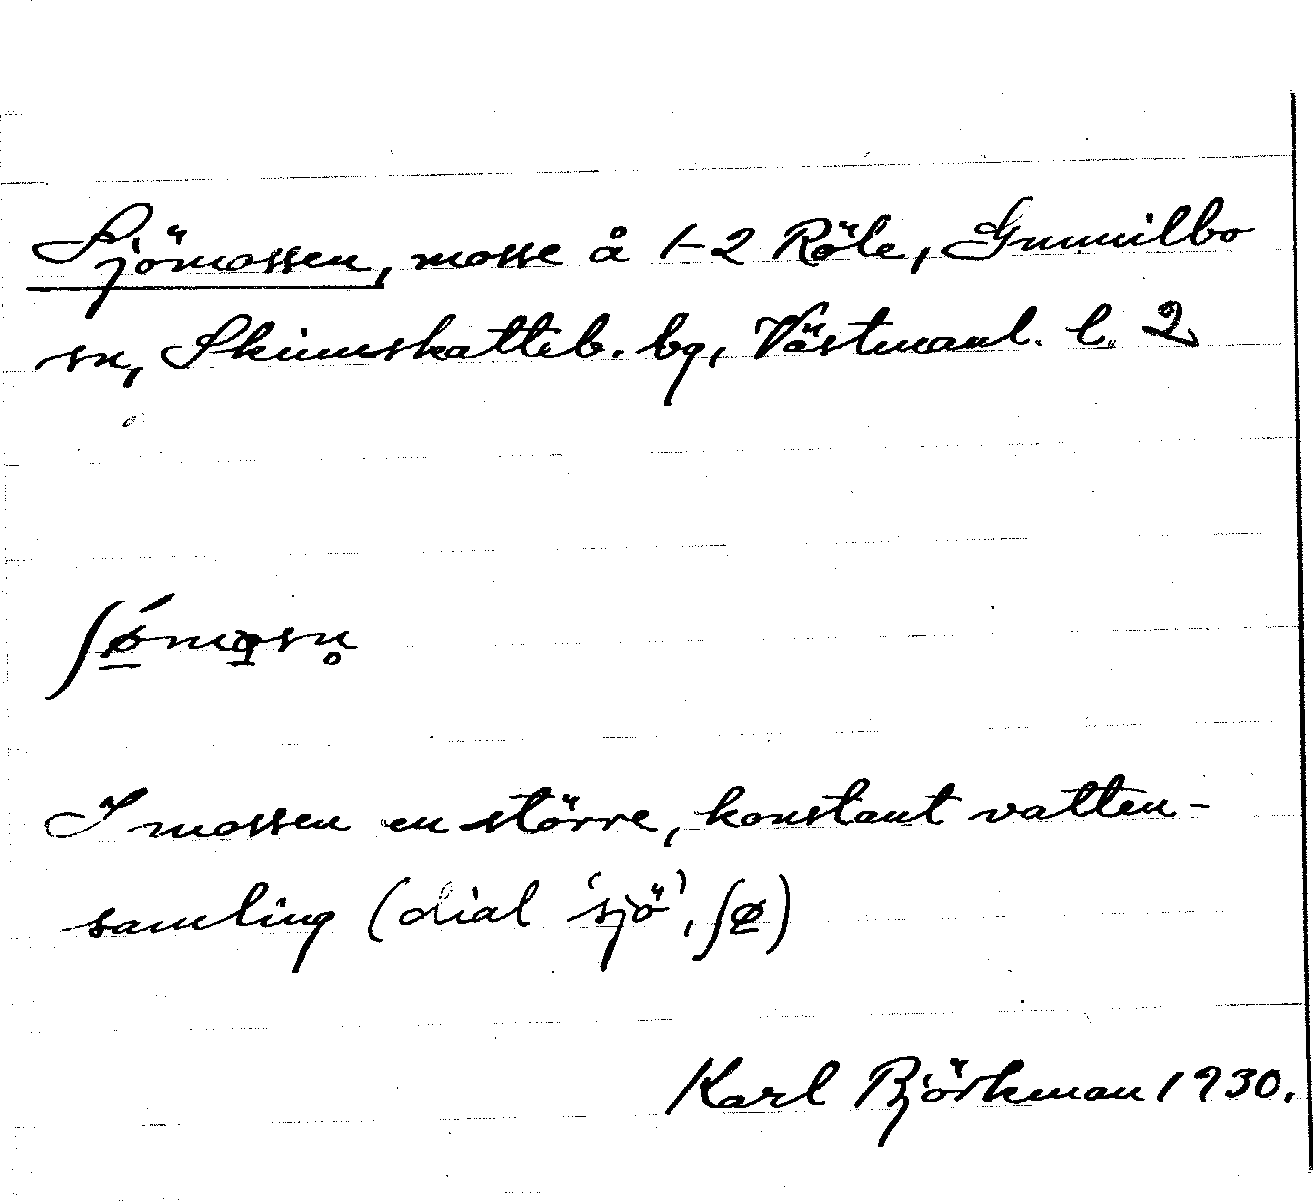 Sjömossen, mosse å 1-2 Röle, Gunnilbo
sn, Skinnskatteb. bg, Västmanl. l. 2
ʃǿ̱mo̱sn̥
I mossen en större, konstant vatten-
samling (dial 'sjö', ʃø̱)
Karl Björkman 1930.